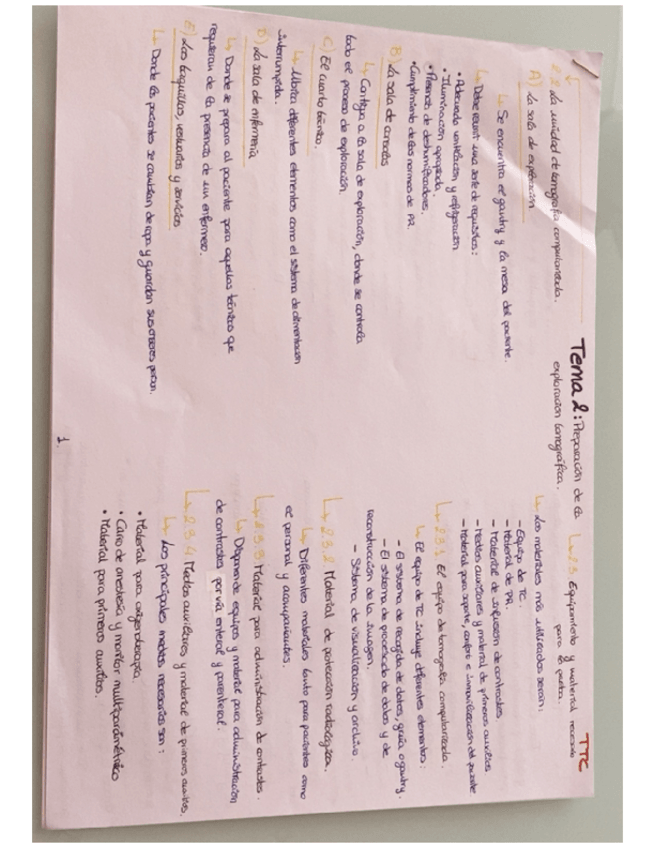 TTC
Tema 2: Preparación de la
exploración tomográfica.
2.2 La unidad de tomografía computarizada.
A) La sala de exploración
↳ Se encuentra el gantry y la mesa del paciente.
↳ Debe reunir una serie de requisitos:
• Adecuada ventilación y refrigeración
• Iluminación apropiada.
• Presencia de deshumificadores.
• Cumplimiento de las normas de PR.
B) La sala de controles
↳ Contigua a la sala de exploración, donde se controla
todo el proceso de exploración.
C) El cuarto técnico.
↳ Ubica diferentes elementos como el sistema de alimentación
interrumpida.
D) La sala de enfermería
↳ Donde se prepara al paciente para aquellas técnicas que
requieran de la presencia de un enfermero.
E) Las taquillas, vestuarios y servicios
↳ Donde los pacientes se cambian de ropa y guardan sus enseres person.
1.
↳ 2.3 Equipamiento y material necesario
para la prueba.
↳ Los materiales más utilizados serán:
- Equipo de TC.
- Material de PR.
- Material de infusión de contrastes.
- Medios auxiliares y material de primeros auxilios
- Material para soporte, confort e inmovilización del paciente
↳ 2.3.1 El equipo de tomografía computarizada.
↳ El equipo de TC incluye diferentes elementos:
- El sistema de recogida de datos, grúa o gantry.
- El sistema de procesado de datos y de
reconstrucción de la imagen.
- Sistema de visualización y archivo.
↳ 2.3.2 Material de protección radiológica.
↳ Diferentes materiales tanto para pacientes como
el personal y acompañantes.
↳ 2.3.3 Material para administración de contrastes.
↳ Dispone de equipos y material para administración
de contrastes por vía enteral y parenteral.
↳ 2.3.4 Medios auxiliares y material de primeros auxilios.
↳ Los principales medios necesarios son:
• Material para oxigenoterapia.
• Carro de anestesia y monitor multiparamétrico
• Material para primeros auxilios.